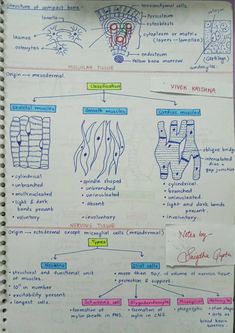 Structure of compact bone
lamella
lacunae
osteocytes
Periosteum
osteoblasts
cytoplasm or matrix
(layers → lamellae)
endosteum
yellow bone marrow
(cartilage)
MUSCULAR TISSUE
Origin → mesodermal.
Classification
VIVEK KRISHNA
Skeletal muscles
Smooth muscles
Cardiac muscles
oblique bridge
intercalated
discs +
gap junction
• cylindrical
• unbranched
• multinucleated
• light & dark
bands present.
• voluntary.
• spindle shaped
• unbranched
• uninucleated
• absent
• involuntary.
• cylindrical
• branched.
• uninucleated
• light and dark bands
present.
• involuntary.
NERVOUS TISSUE
Origin → ectodermal except microglial cells (mesodermal)
Types
Notes by -
Neurons
Glial cells
• structural and functional unit
of muscles.
• excitability present
• longest cells.
• more than 50% of volume of nervous tissue
• protection & support
Schwann cell
Oligodendrocyte
• formation of
mylin sheath in PNS.
• formation of
mylin in CNS.